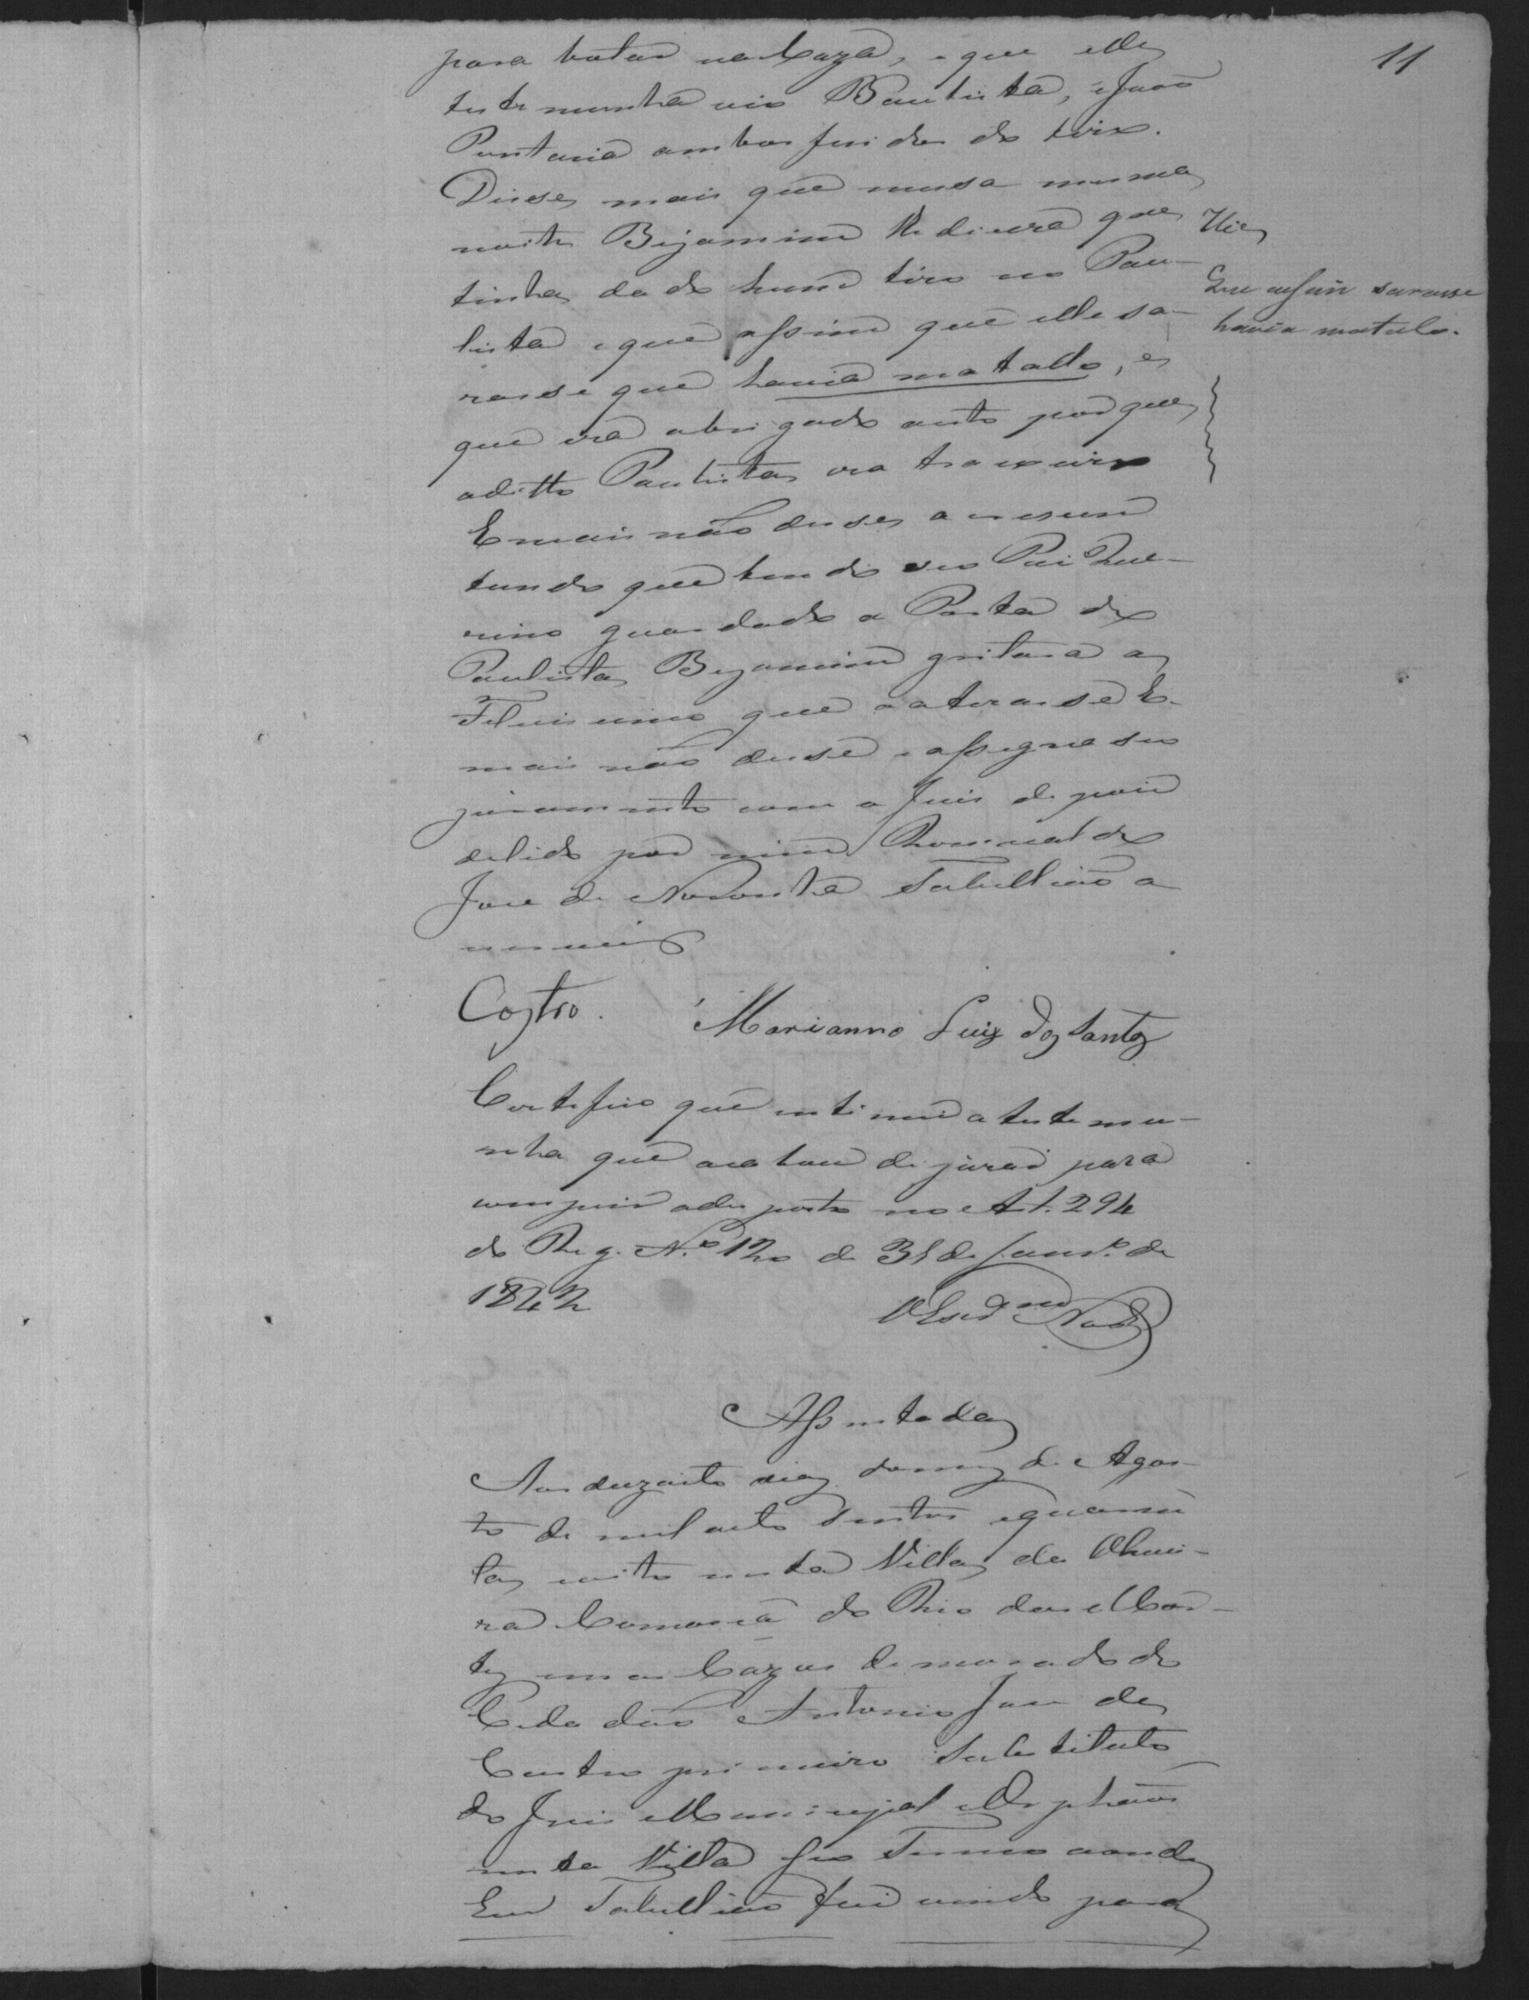 11
para botar na Caza, e que elle
testemunha vio Bautista, e João
Pontaria ambos feridos do tiro.
Disse mais que nessa mesma
noite Bejamim lhe dicera que
tinha dado hum tiro no Pau-
lista e que assim que elle sa-
rasse que havia matallo, e
que era obrigado a isto porque
a ditto Paulista era traisueiro
E mais não disse a cresem
tando que tendo seo Pai Que-
rino guardado a Porta do
Paulista Bejamim gritara a
Felinimo que a aterasse E
mais não disse e assigna seu
juramento com o Juis de pois
de lido por mim Romualdo
Jose de Noronha Tabellião a
escrevi
Vie
Que assim sarasse
havia matalo.
Castro. Marianno Luiz dos Santos
Certefico que intimei a testemu-
nha que acabou de jurar para
comprir a desposto no Art. 294
do Reg. N.º 120 de 31 de Janr.º de
1842 O Escr.am Nor.a
Assentada
Aos dezoito dias do mes de Agos-
to de mil oito sentos e quaren
ta e oito nesta Villa de Olivei-
ra Comarca do Rio das Mor-
tes em as Cazas de morada do
Cidadão Antonio Jose de
Castro primeiro Substituto
do Juis Municipal e Orphãos
nesta Villa seo Termo aonde
Eu Tabellião fui vindo para